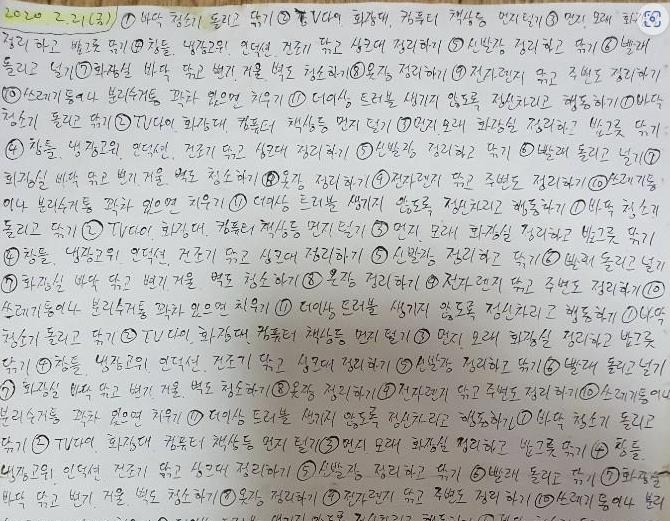 2020 2.21(금) ① 바닥 청소기 돌리고 닦기 ② TV다이 화장대, 컴퓨터 책상등 먼지털기 ③ 먼지, 모래 화장실
정리하고 밥그릇 닦기 ④ 창틀, 냉장고위, 인덕션, 건조기 닦고 싱크대 정리하기 ⑤ 신발장 정리하고 닦기 ⑥ 빨래
돌리고 널기 ⑦ 화장실 바닥 닦고 변기, 거울, 벽도 청소하기 ⑧ 옷장 정리하기 ⑨ 전자렌지 닦고 주변도 정리하기
⑩ 쓰레기통이나 분리수거통 꽉차 있으면 치우기 ⑪ 더이상 트러블 생기지 않도록 정신차리고 행동하기 ① 바닥
청소기 돌리고 닦기 ② TV다이, 화장대, 컴퓨터 책상등 먼지 털기 ③ 먼지 모래 화장실 정리하고 밥그릇 닦기
④ 창틀, 냉장고위, 인덕션, 건조기 닦고 싱크대 정리하기 ⑤ 신발장 정리하고 닦기 ⑥ 빨래 돌리고 널기 ⑦
화장실 바닥 닦고 변기, 거울, 벽도 청소하기 ⑧ 옷장 정리하기 ⑨ 전자렌지 닦고 주변도 정리하기 ⑩ 쓰레기통
이나 분리수거통 꽉차 있으면 치우기 ⑪ 더이상 트러블 생기지 않도록 정신차리고 행동하기 ① 바닥 청소기
돌리고 닦기 ② TV다이, 화장대, 컴퓨터 책상등 먼지털기 ③ 먼지 모래 화장실 정리하고 밥그릇 닦기
④ 창틀, 냉장고위, 인덕션, 건조기 닦고 싱크대 정리하기 ⑤ 신발장 정리하고 닦기 ⑥ 빨래 돌리고 널기
⑦ 화장실 바닥 닦고 변기 거울, 벽도 청소하기 ⑧ 옷장 정리하기 ⑨ 전자렌지 닦고 주변도 정리하기 ⑩
쓰레기통이나 분리수거통 꽉차 있으면 치우기 ⑪ 더이상 트러블 생기지 않도록 정신차리고 행동하기 ① 바닥
청소기 돌리고 닦기 ② TV다이, 화장대, 컴퓨터 책상등 먼지 털기 ③ 먼지, 모래 화장실 정리하고 밥그릇
닦기 ④ 창틀, 냉장고위, 인덕션, 건조기 닦고 싱크대 정리하기 ⑤ 신발장 정리하고 닦기 ⑥ 빨래 돌리고 널기
⑦ 화장실 바닥 닦고 변기, 거울, 벽도 청소하기 ⑧ 옷장 정리하기 ⑨ 전자렌지 닦고 주변도 정리하기 ⑩ 쓰레기통이나
분리수거통 꽉차 있으면 치우기 ⑪ 더이상 트러블 생기지 않도록 정신차리고 행동하기 ① 바닥 청소기 돌리고
닦기 ② TV다이, 화장대 컴퓨터 책상등 먼지 털기 ③ 먼지, 모래 화장실 정리하고 밥그릇 닦기 ④ 창틀,
냉장고위, 인덕션 건조기 닦고 싱크대 정리하기 ⑤ 신발장 정리하고 닦기 ⑥ 빨래 돌리고 널기 ⑦ 화장실
바닥 닦고 변기, 거울, 벽도 청소하기 ⑧ 옷장 정리하기 ⑨ 전자렌지 닦고 주변도 정리하기 ⑩ 쓰레기통이나 분리